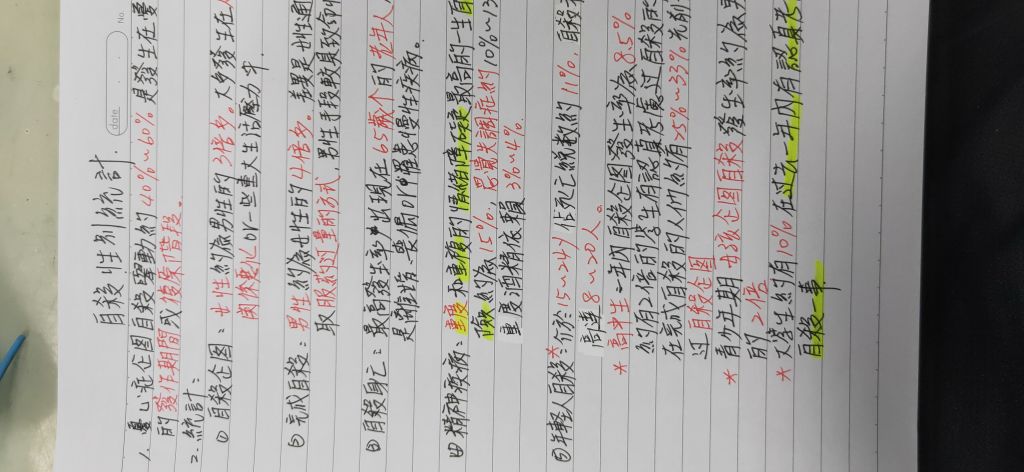 No.
date
自殺性別統計.
1. 憂心症企圖自殺舉動約的40%~60% 是發生在憂
的發作期間或復原階段。
2. 統計:
① 自殺企圖: 女性約為男性的3倍多。大多發生在
關係要心or一些重大生活壓力中
② 完成自殺: 男性約為女性的4倍多。 差異是女性通
取服藥過量的方式, 男性手段較具致命
自殺身亡: 最高發生率出現在65歲个目的老年人
是離婚、喪偶or罹患慢性疾病。
四 精神疾病: 重度和重複的情緒障礙是最高的一生自
險約為15%, 思覺失調症約10%~13
重度酒精依賴 3%~4%.
年輕人自殺: 介於15~24y 佔死亡總數的11%, 自殺
8~20人。
* 高中生: 一年內自殺企圖發生率為8.5%
約有2倍的學生有認真思慮過自殺
在完成自殺的人們約有25%~33% 先前
過自殺企圖
* 青少年期女孩企圖自殺發生率約為男
的2倍
* 大學生約有10%在過去一年內有認真考
自殺一事